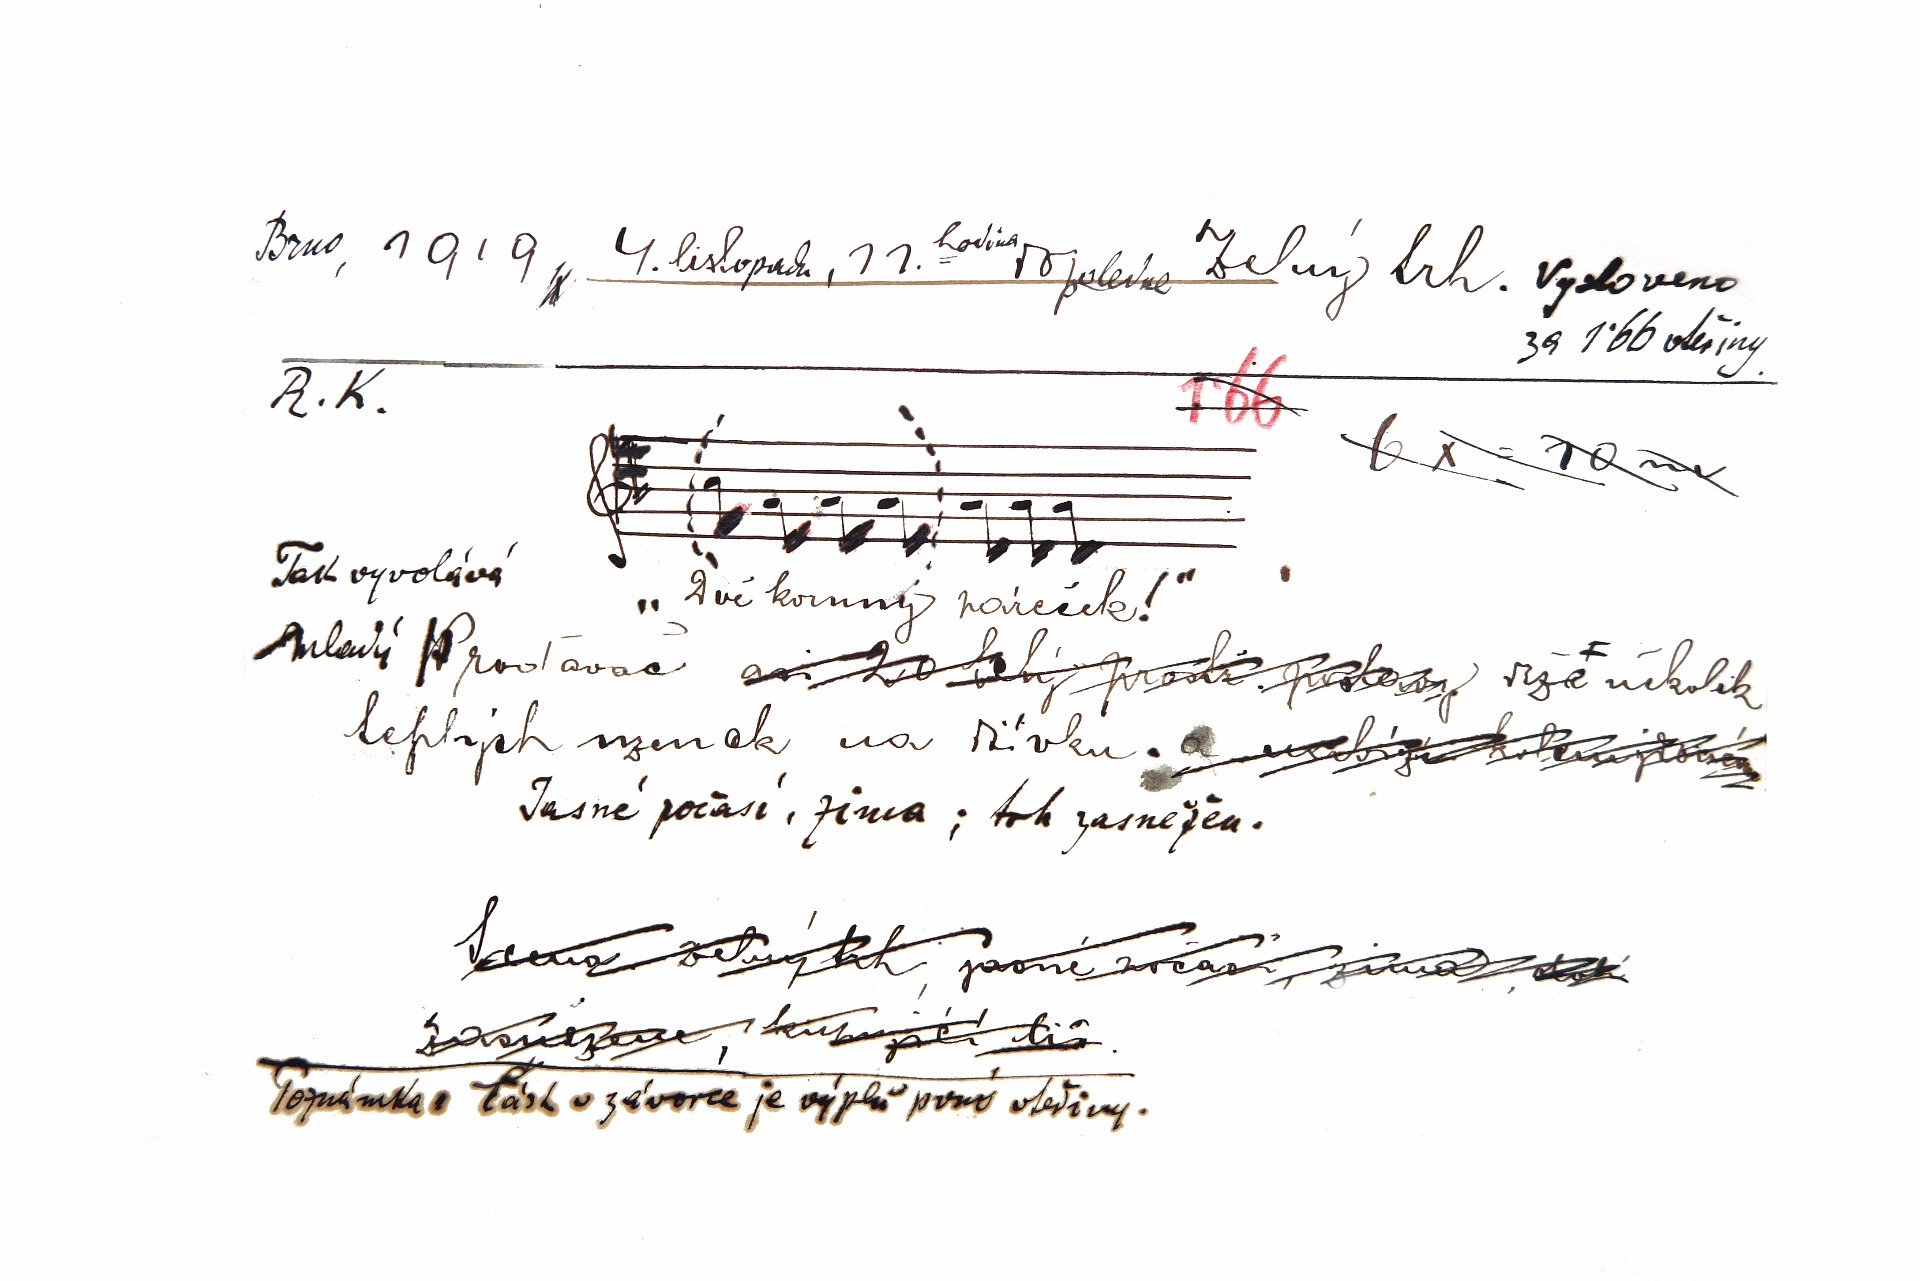 Brno, 1919, 4. listopadu, 11. hodina dopoledne Zelný trh. Vysloveno
za 1'66 vteřiny.
R.K.
1'66
6 x = 10
Tak vyvolává
„Dvě koruny páreček!"
mladý Prodavač drže několik
teplých uzenek na dívku.
Jasné počasí, zima; trh zasněžen.
zelný trh, jasné počasí, zima,
zasněžene,
Poznámka: Část v závorce je výplň prvé vteřiny.